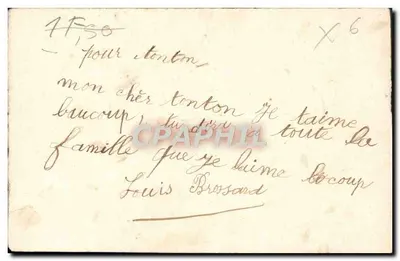 1F,50
X 6
- pour tonton
mon chèr tonton je t'aime
baucoup, tu dira toute la
famille que je l'aime bocoup
Louis Bressard
CPAPHIL.COM